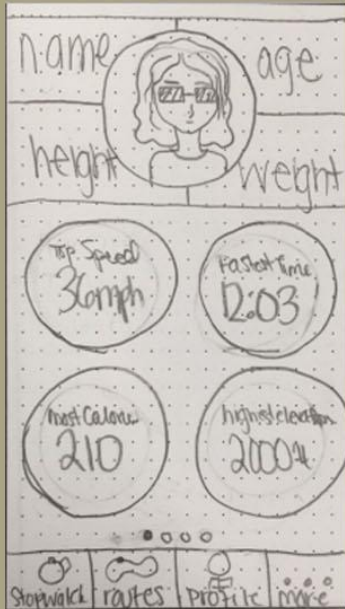 name age
height weight
Top Speed
36mph
Fastest Time
12:03
most Calorie
210
highest elevation
2000ft
stopwatch routes profile more